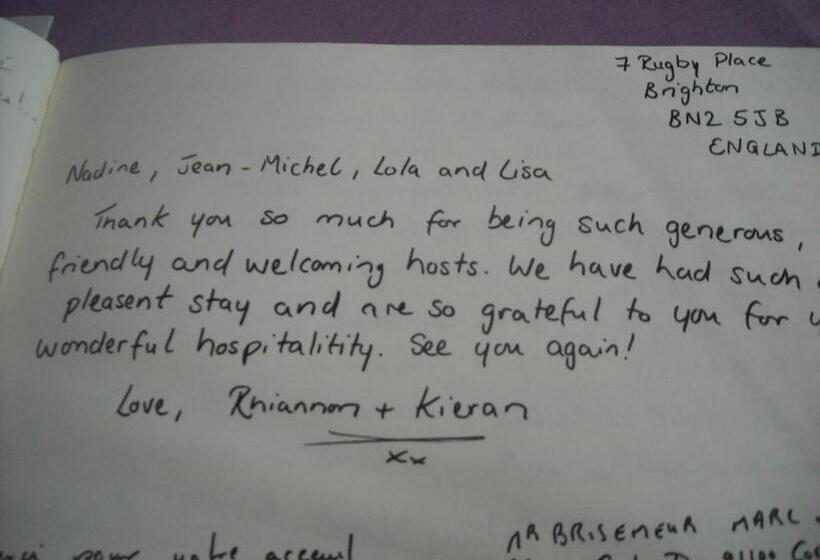 7 Rugby Place
Brighton
BN2 5JB
ENGLAND
Nadine, Jean-Michel, Lola and Lisa
Thank you so much for being such generous,
friendly and welcoming hosts. We have had such
pleasent stay and are so grateful to you for
wonderful hospitalitity. See you again!
Love, Rhiannon + Kieran
xx
pour votre accueil
MR BRISEMEUR MARC